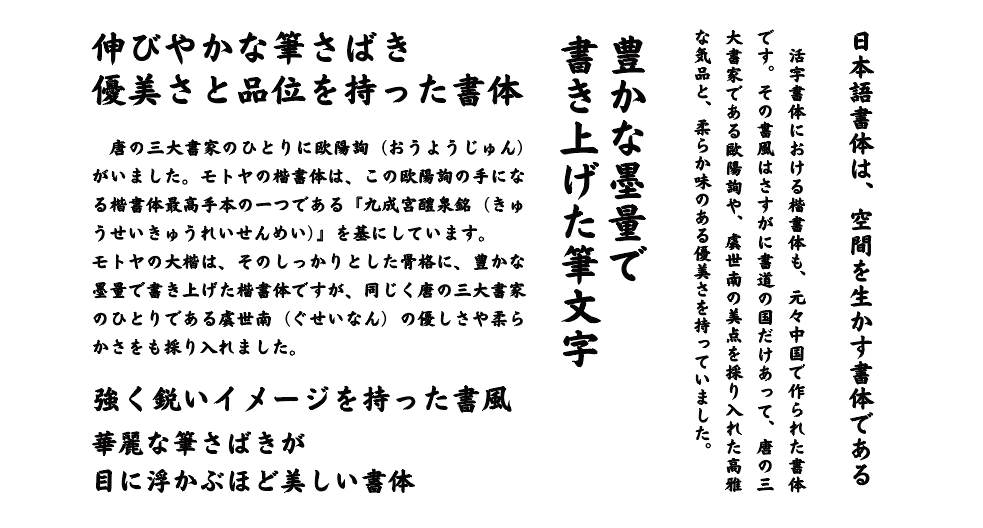 伸びやかな筆さばき
優美さと品位を持った書体
唐の三大書家のひとりに欧陽詢（おうようじゅん）
がいました。モトヤの楷書体は、この欧陽詢の手にな
る楷書体最高手本の一つである『九成宮醴泉銘（きゅ
うせいきゅうれいせんめい）』を基にしています。
モトヤの大楷は、そのしっかりとした骨格に、豊かな
墨量で書き上げた楷書体ですが、同じく唐の三大書家
のひとりである虞世南（ぐせいなん）の優しさや柔ら
かさをも採り入れました。
強く鋭いイメージを持った書風
華麗な筆さばきが
目に浮かぶほど美しい書体
豊かな墨量で
書き上げた筆文字
日本語書体は、空間を生かす書体である
活字書体における楷書体も、元々中国で作られた書体
です。その書風はさすがに書道の国だけあって、唐の三
大書家である欧陽詢や、虞世南の美点を採り入れた高雅
な気品と、柔らか味のある優美さを持っていました。